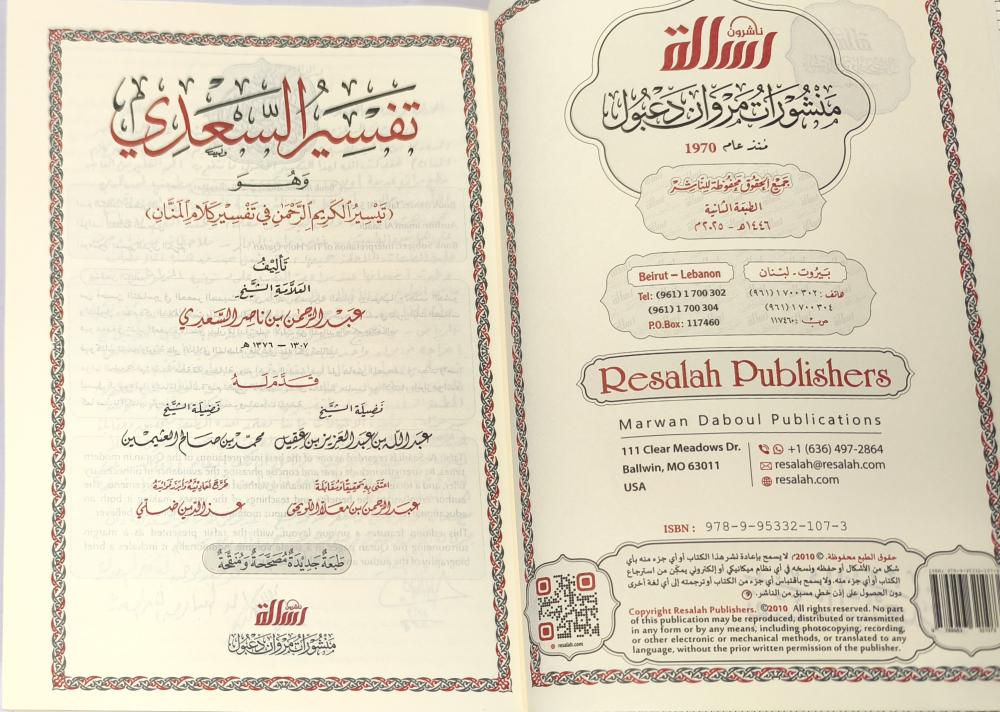 تَفْسِيرُ السَّعْدِي
وَهُوَ
(تَيْسِيرُ الكَرِيمِ الرَّحْمَنِ فِي تَفْسِيرِ كَلَامِ المَنَّانِ)
تَأْلِيفُ
العَلَّامَةِ الشَّيْخِ
عبد الرحمن بن ناصر السعدي
١٣٠٧ – ١٣٧٦ هـ
قَدَّمَ لَهُ
فَضِيلَة الشَّيْخ
عبد الله بن عبد العزيز بن عقيل
فَضِيلَة الشَّيْخ
محمد بن صالح العثيمين
اعْتَنَى بِهِ تَحْقِيقًا وَمُقَابَلَةً
عبد الرحمن بن معلا اللويحق
خَرَّجَ أَحَادِيثَهُ
عز الدين ضلي
طَبْعَةٌ جَدِيدَةٌ مُصَحَّحَةٌ وَمُنَقَّحَةٌ
ناشرون
رسالة
منشورات مروان دعبول
ناشرون
رسالة
مَنْشُورَات مَرْوَان دَعْبُول
منذ عام 1970
جميع الحقوق محفوظة للناشر
الطبعة الثانية
١٤٤٦هـ - ٢٠٢٥م
Beirut – Lebanon
Tel: (961) 1 700 302
(961) 1 700 304
P.O.Box: 117460
بيروت - لبنان
هاتف: ٧٠٠٣٠٢ ١ (٩٦١)
٧٠٠٣٠٤ ١ (٩٦١)
ص.ب: ١١٧٤٦٠
Resalah Publishers
Marwan Daboul Publications
111 Clear Meadows Dr.
Ballwin, MO 63011
USA
+1 (636) 497-2864
resalah@resalah.com
resalah.com
ISBN: 978-9-95332-107-3
حقوق الطبع محفوظة. © 2010م. لا يسمح بإعادة نشر هذا الكتاب أو أي جزء منه بأي
شكل من الأشكال أو حفظه ونسخه في أي نظام ميكانيكي أو إلكتروني يمكّن من استرجاع
الكتاب أو أي جزء منه. ولا يسمح باقتباس أي جزء من الكتاب أو ترجمته إلى أي لغة أخرى
دون الحصول على إذن خطي مسبق من الناشر.
Copyright Resalah Publishers. ©2010 All rights reserved. No part
of this publication may be reproduced, distributed or transmitted
in any form or by any means, including photocopying, recording,
or other electronic or mechanical methods, or translated to any
language, without the prior written permission of the publisher.
resalah.com